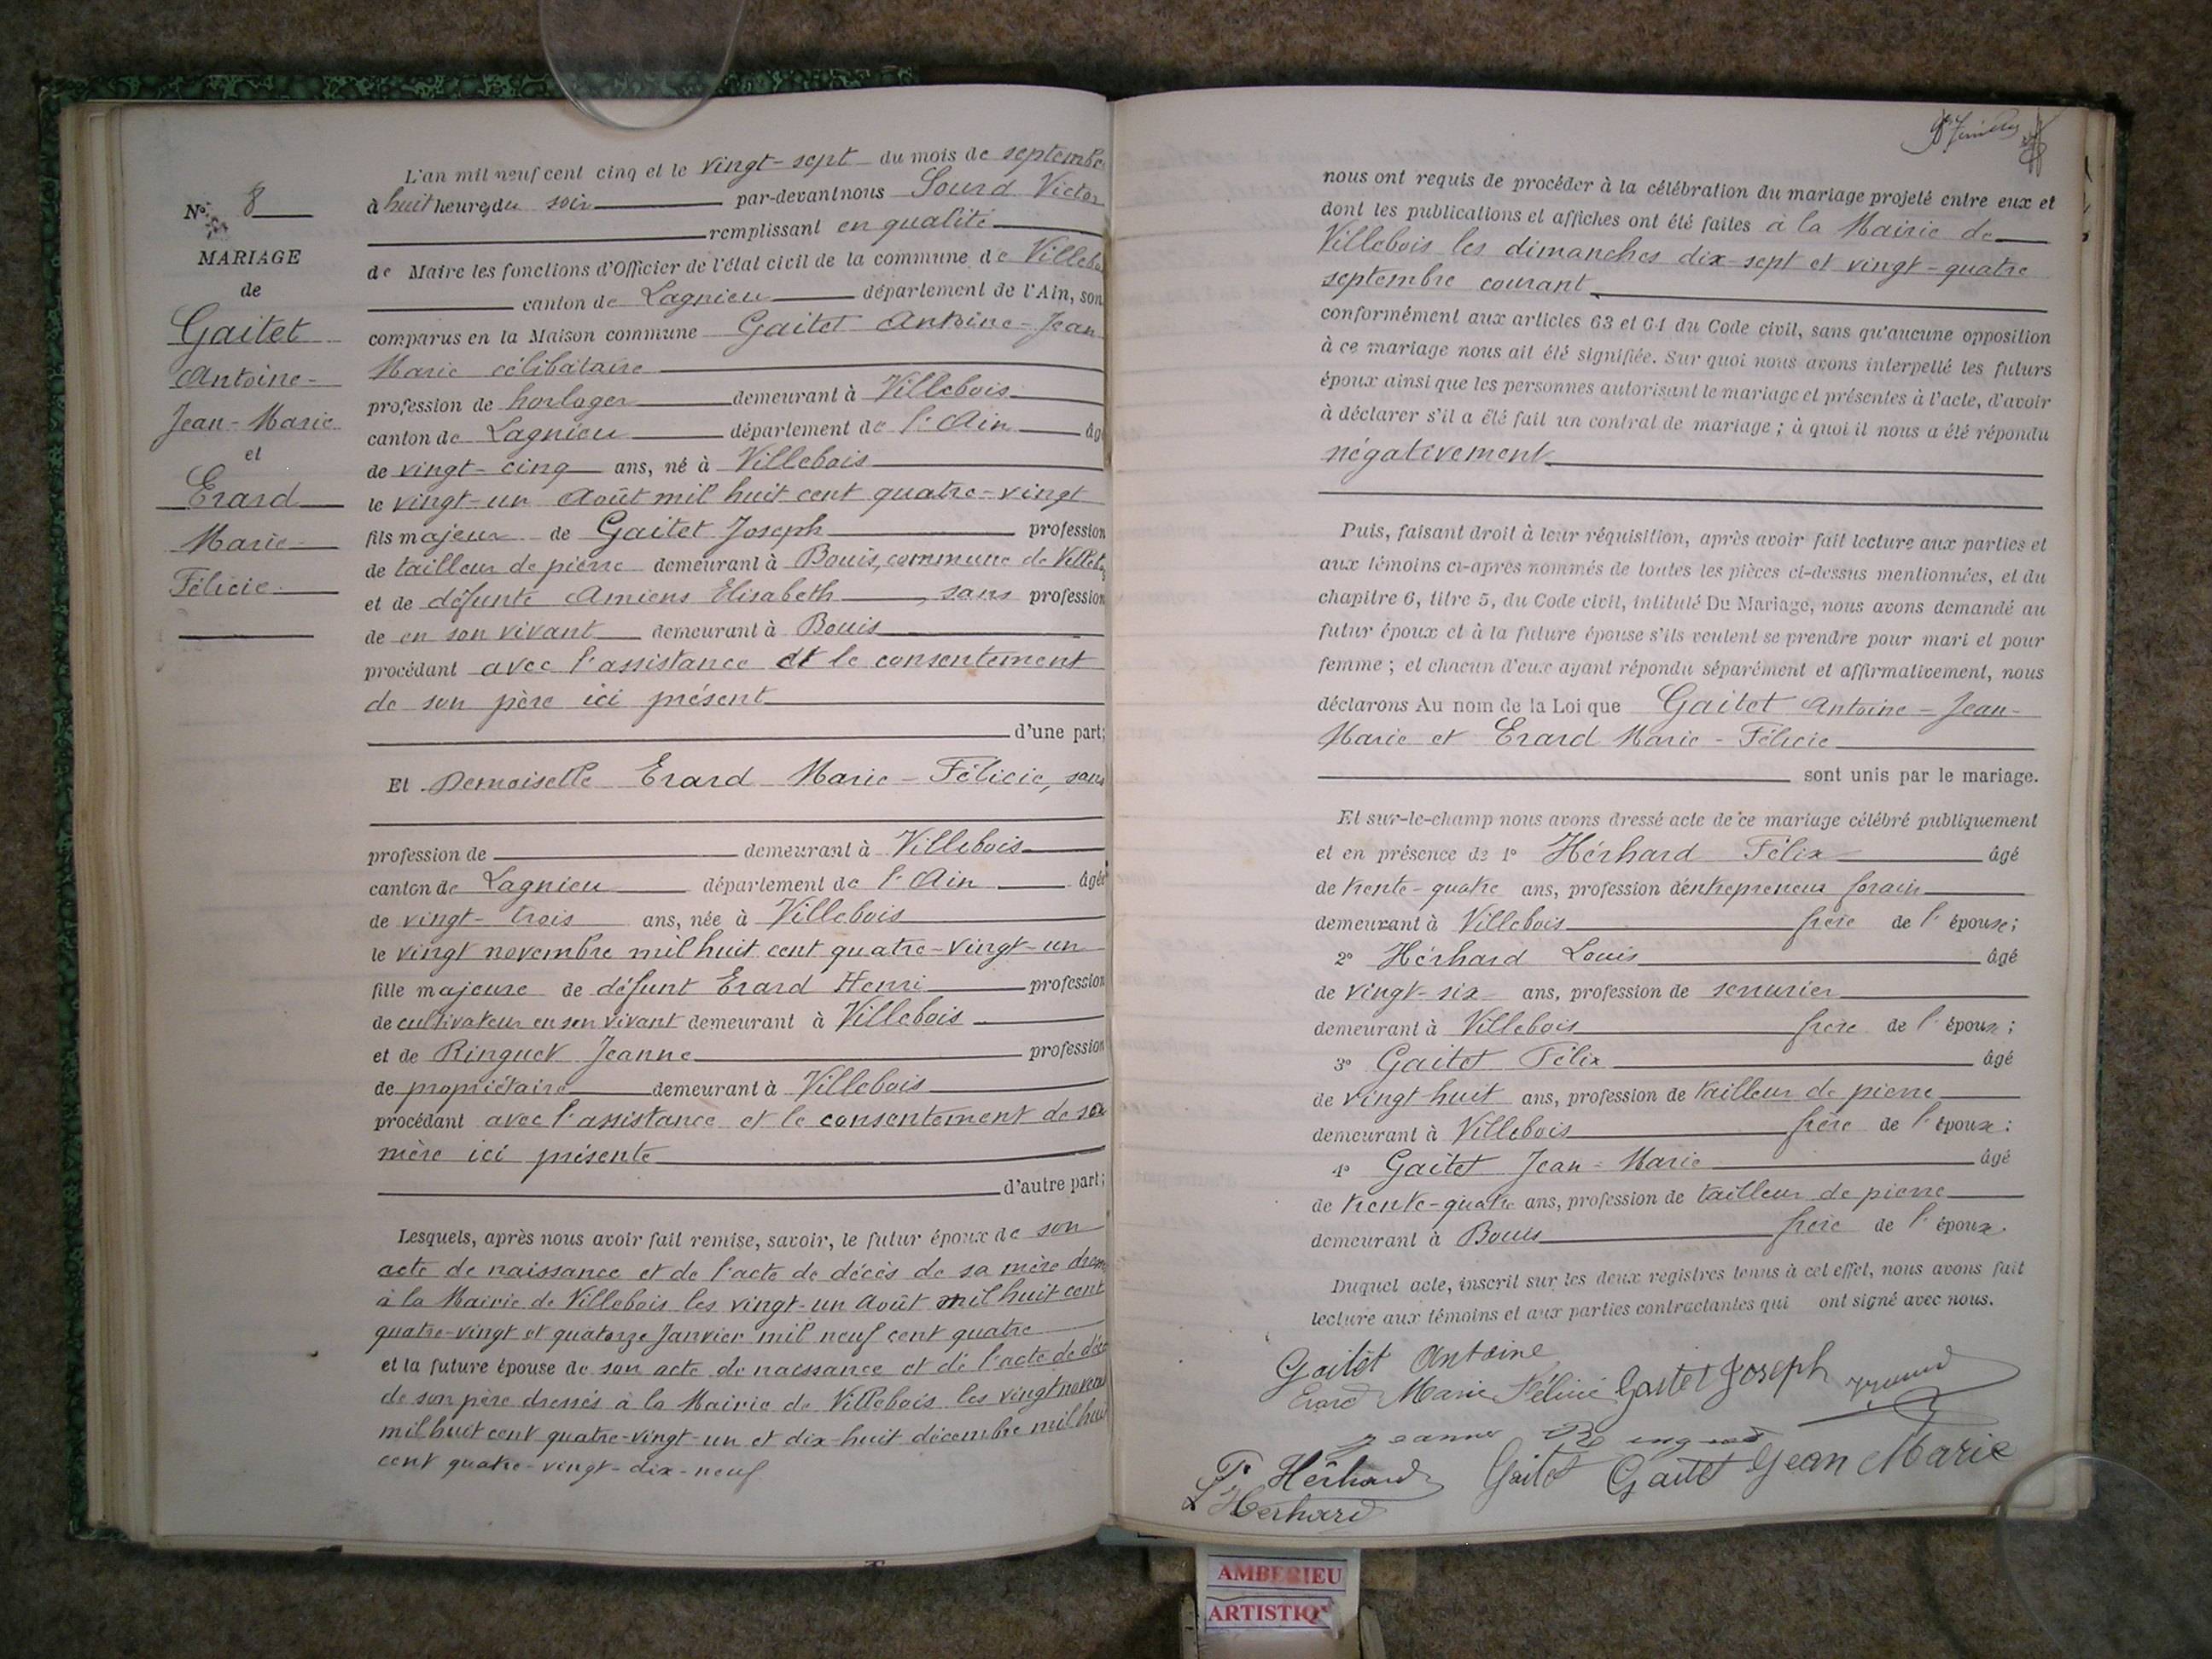 N° 8
MARIAGE
de
Gaitet
Antoine-
Jean-Marie
et
Erard
Marie-
Félicie
L'an mil neuf cent cinq et le vingt-sept du mois de septembre
à huit heures du soir par-devant nous Sourd Victor
remplissant en qualité
de Maire les fonctions d'Officier de l'état civil de la commune de Villebo
canton de Lagnieu département de l'Ain, son
comparus en la Maison commune Gaitet Antoine-Jean
Marie célibataire
profession de horloger demeurant à Villebois
canton de Lagnieu département de l'Ain âgé
de vingt-cinq ans, né à Villebois
le vingt-un Août mil huit cent quatre-vingt
fils majeur de Gaitet Joseph profession
de tailleur de pierre demeurant à Bouis, commune de Villebo
et de défunte Amiens Elisabeth, sans profession
de en son vivant demeurant à Bouis
procédant avec l'assistance et le consentement
de son père ici présent
d'une part;
Et Demoiselle Erard Marie-Félicie, sans
profession de demeurant à Villebois
canton de Lagnieu département de l'Ain âgée
de vingt-trois ans, née à Villebois
le vingt novembre mil huit cent quatre-vingt-un
fille majeure de défunt Erard Henri profession
de cultivateur en son vivant demeurant à Villebois
et de Ringuet Jeanne profession
de propriétaire demeurant à Villebois
procédant avec l'assistance et le consentement de sa
mère ici présente
d'autre part;
Lesquels, après nous avoir fait remise, savoir, le futur époux de son
acte de naissance et de l'acte de décès de sa mère dressés
à la Mairie de Villebois les vingt-un Août mil huit cent
quatre-vingt et quatorze Janvier mil neuf cent quatre
et la future épouse de son acte de naissance et de l'acte de déc
de son père dressés à la Mairie de Villebois les vingt novem
mil huit cent quatre-vingt-un et dix-huit décembre mil huit
cent quatre-vingt-dix-neuf
nous ont requis de procéder à la célébration du mariage projeté entre eux et
dont les publications et affiches ont été faites à la Mairie de
Villebois les dimanches dix-sept et vingt-quatre
septembre courant
conformément aux articles 63 et 64 du Code civil, sans qu'aucune opposition
à ce mariage nous ait été signifiée. Sur quoi nous avons interpellé les futurs
époux ainsi que les personnes autorisant le mariage et présentes à l'acte, d'avoir
à déclarer s'il a été fait un contrat de mariage; à quoi il nous a été répondu
négativement
Puis, faisant droit à leur réquisition, après avoir fait lecture aux parties et
aux témoins ci-après nommés de toutes les pièces ci-dessus mentionnées, et du
chapitre 6, titre 5, du Code civil, intitulé Du Mariage, nous avons demandé au
futur époux et à la future épouse s'ils veulent se prendre pour mari et pour
femme; et chacun d'eux ayant répondu séparément et affirmativement, nous
déclarons Au nom de la Loi que Gaitet Antoine-Jean-
Marie et Erard Marie-Félicie
sont unis par le mariage.
Et sur-le-champ nous avons dressé acte de ce mariage célébré publiquement
et en présence de 1° Hérhard Félix âgé
de trente-quatre ans, profession d'entrepreneur forain
demeurant à Villebois frère de l'épouse;
2° Hérhard Louis âgé
de vingt-six ans, profession de serrurier
demeurant à Villebois frère de l'épouse;
3° Gaitet Félix âgé
de vingt-huit ans, profession de tailleur de pierre
demeurant à Villebois frère de l'époux;
4° Gaitet Jean-Marie âgé
de trente-quatre ans, profession de tailleur de pierre
demeurant à Bouis frère de l'époux.
Duquel acte, inscrit sur les deux registres tenus à cet effet, nous avons fait
lecture aux témoins et aux parties contractantes qui ont signé avec nous.
Gaitet Antoine
Erard Marie Félicie Gaitet Joseph
Jeanne Ringuet
F. Hérhard Gaitet Gaitet Jean Marie
L Herhard
AMBERIEU
ARTISTIQ